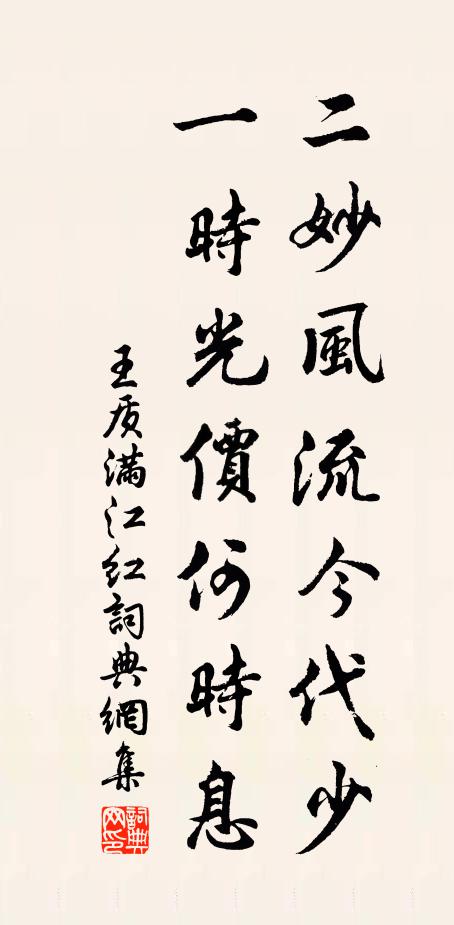 二妙風流今代少
一時光價何時息
王质满江红詞典網集
詞典網印